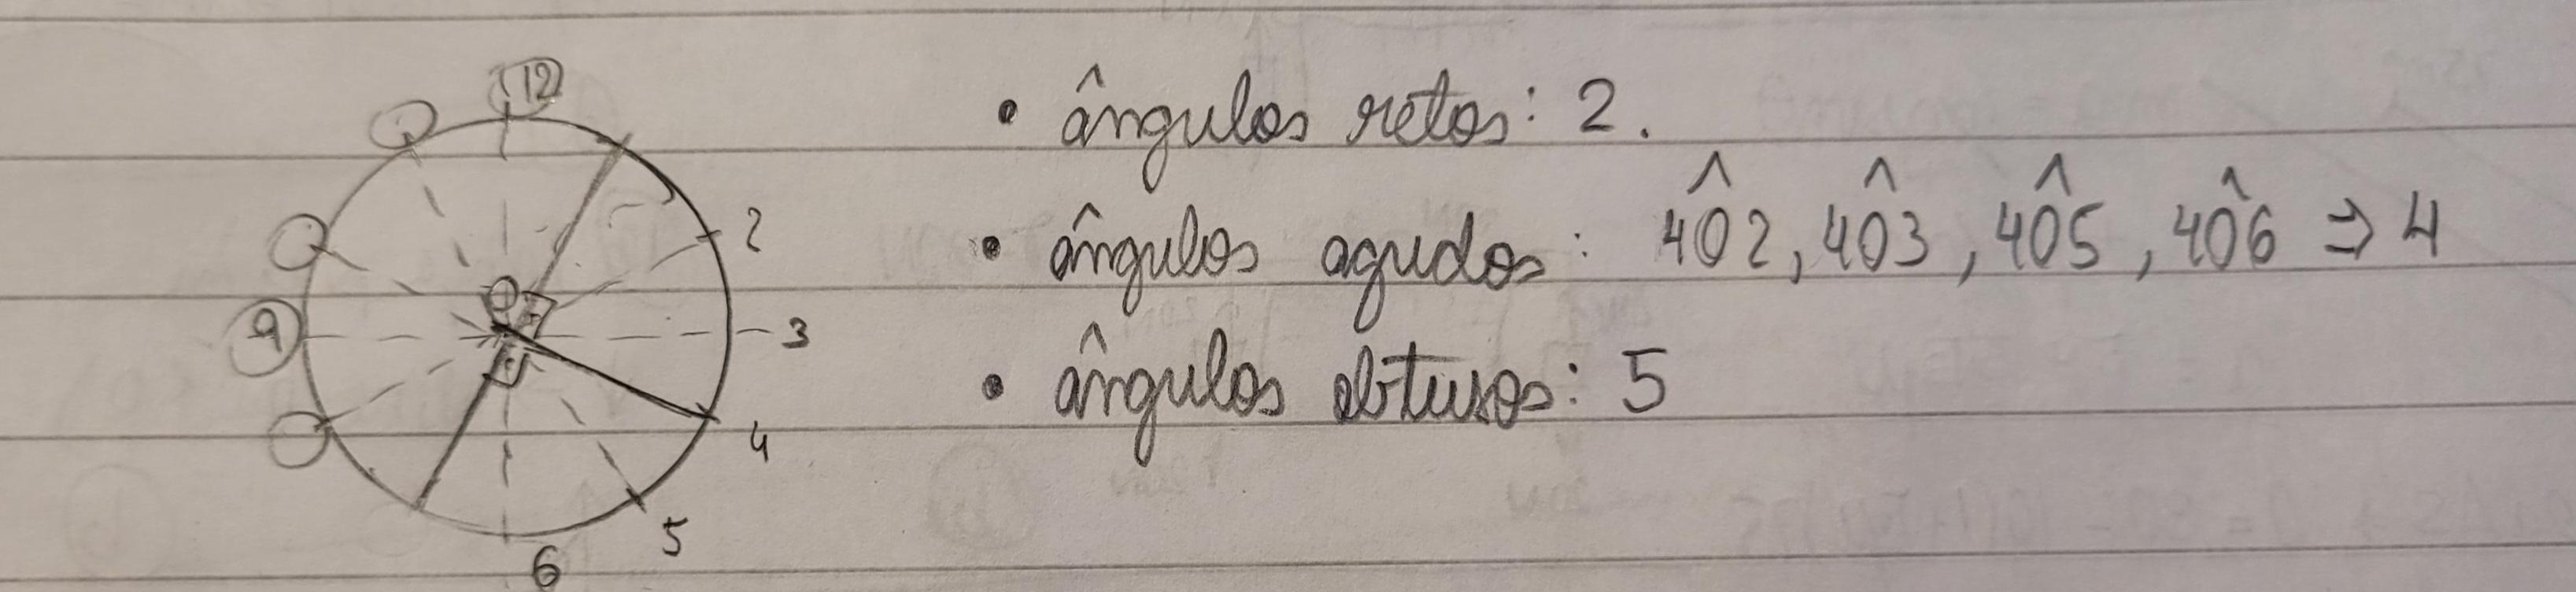 12
2
O
9
3
4
5
6
• ângulos retos: 2.
• ângulos agudos: 4Ô2, 4Ô3, 4Ô5, 4Ô6 ⇒ 4
• ângulos obtusos: 5